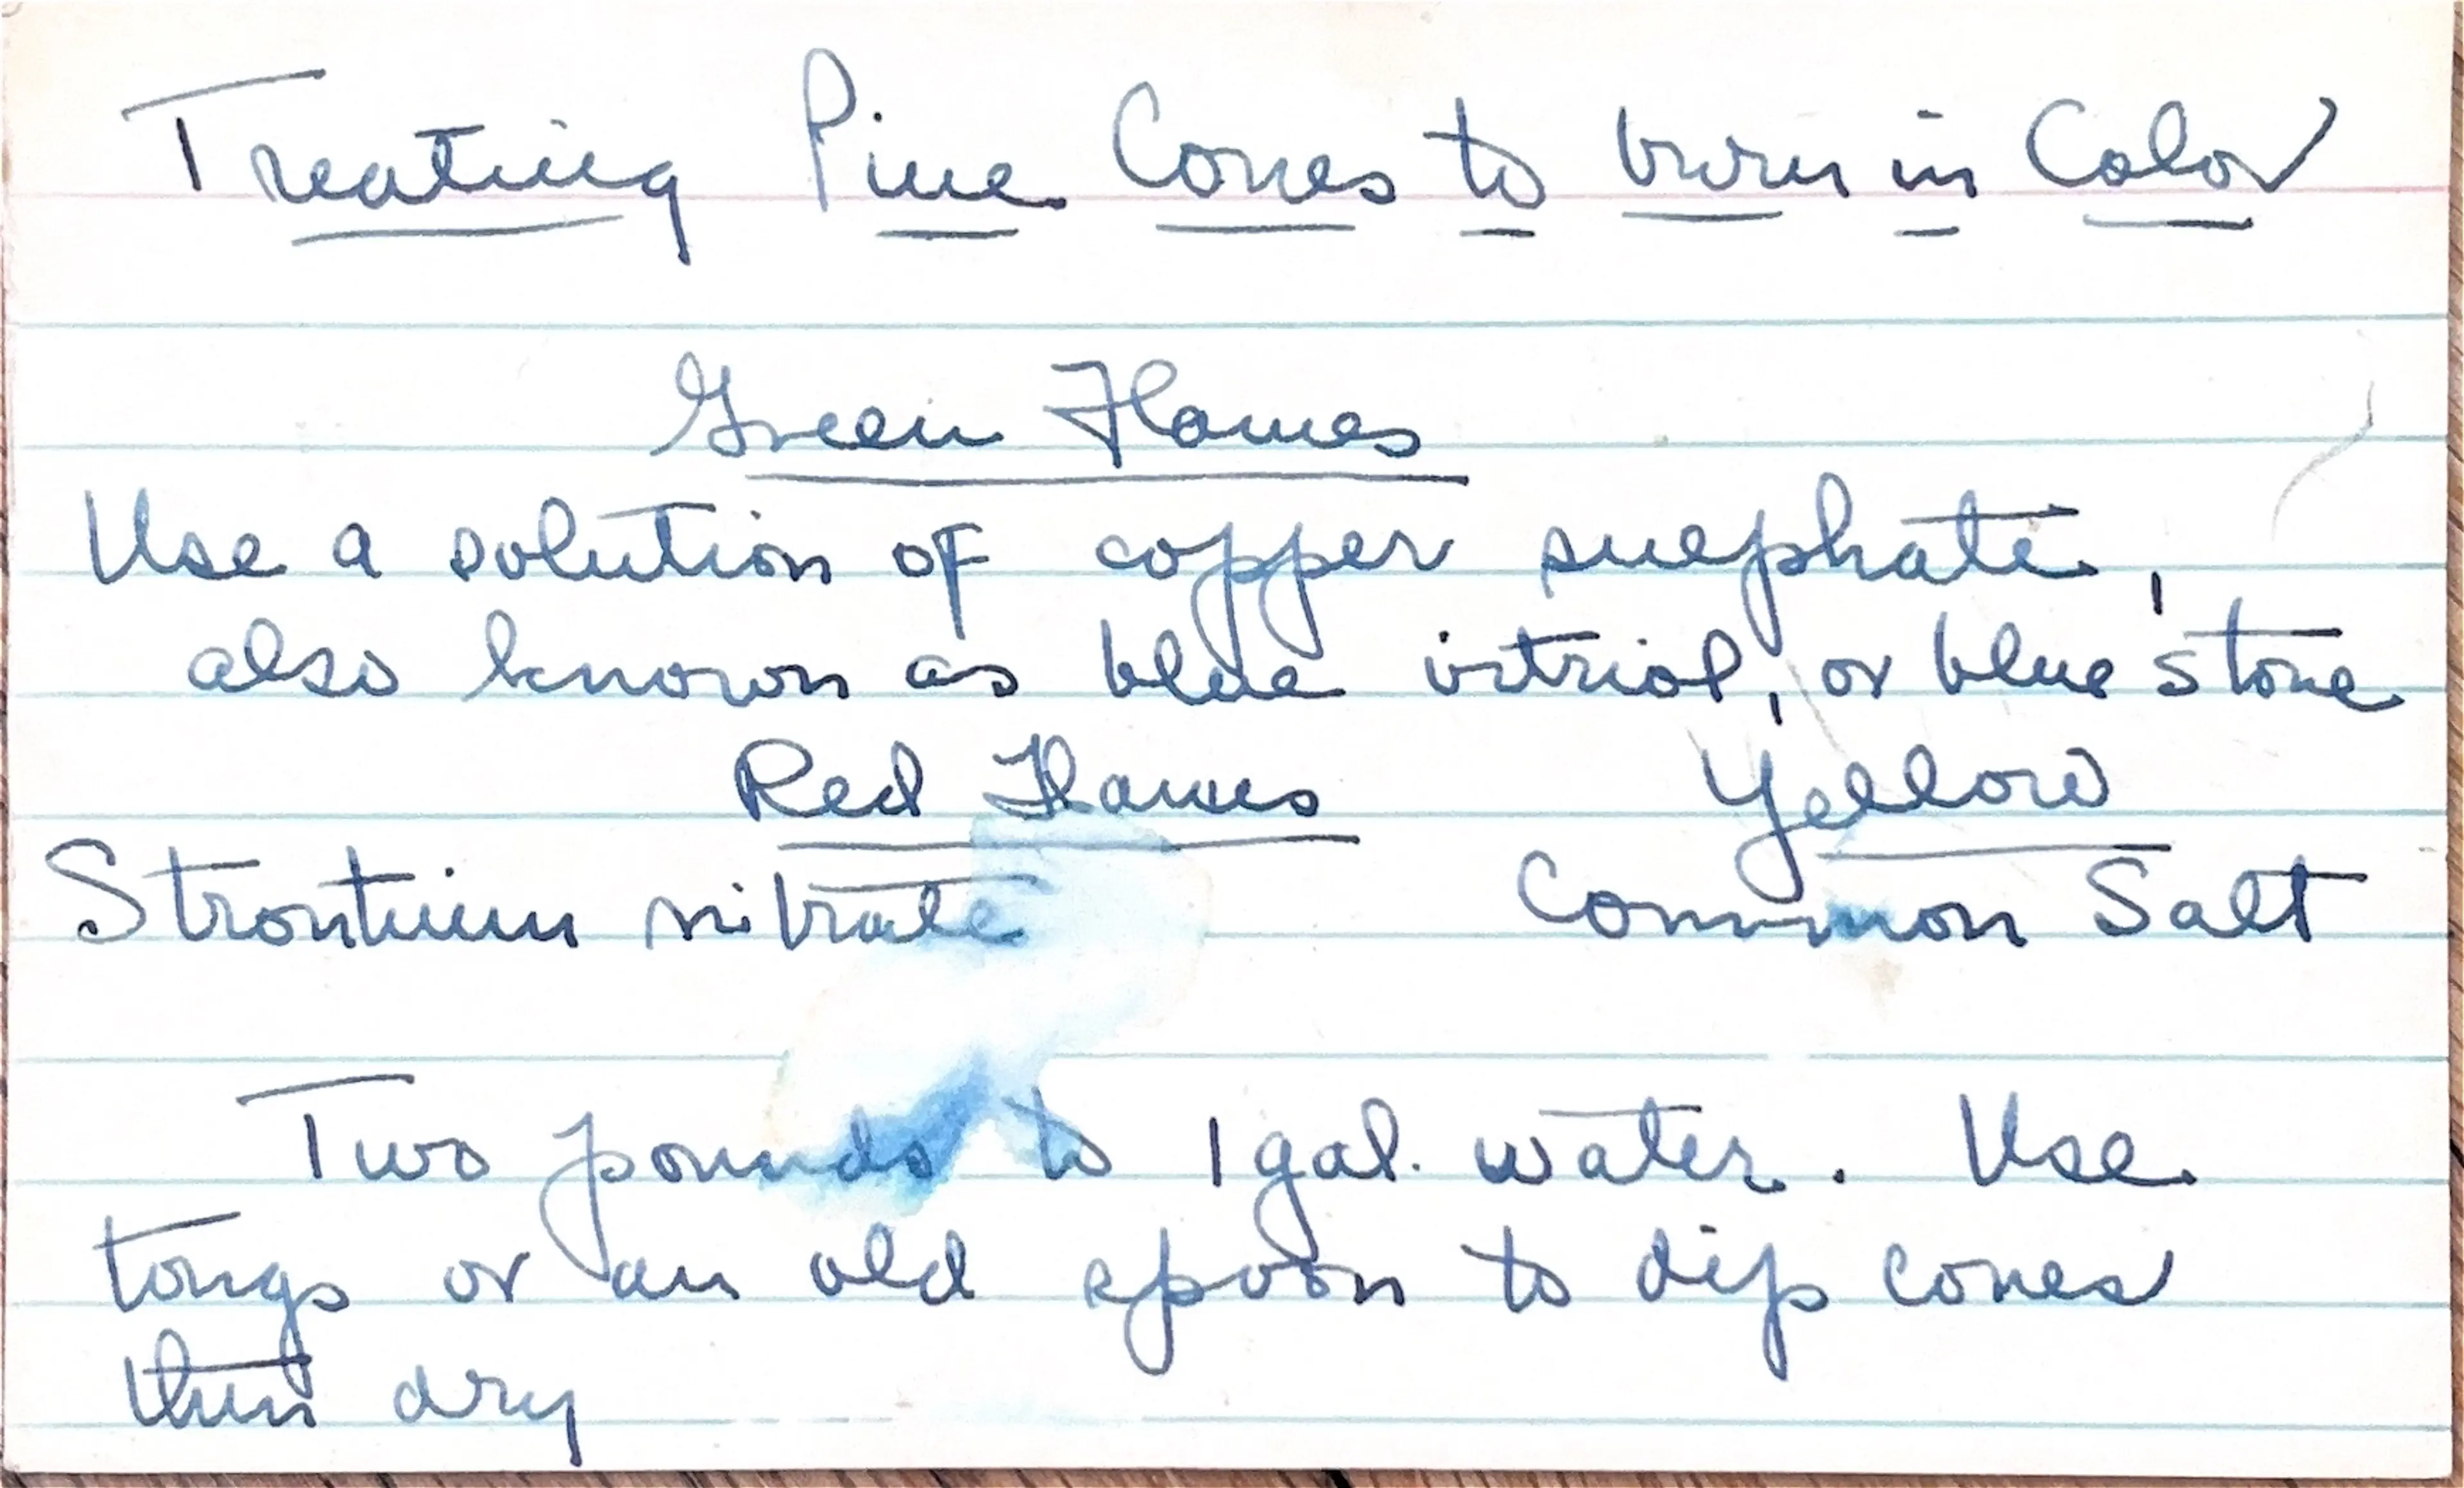 Treating Pine Cones to burn in Color
Green Flames
Use a solution of copper sulphate,
also known as blue vitriol, or blue stone
Red Flames Yellow
Strontium nitrate Common Salt
Two pounds to 1 gal. water. Use
tongs or an old spoon to dip cones
then dry